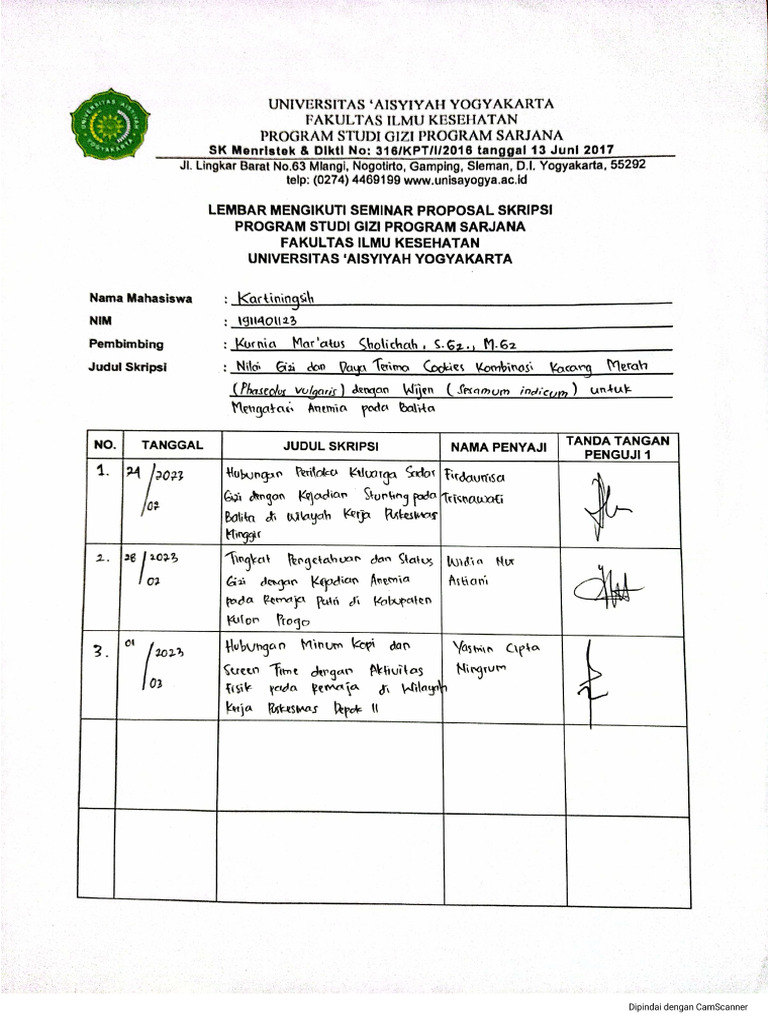 UNIVERSITAS 'AISYIYAH YOGYAKARTA
UNIVERSITAS 'AISYIYAH YOGYAKARTA
FAKULTAS ILMU KESEHATAN
PROGRAM STUDI GIZI PROGRAM SARJANA
SK Menristek & Dikti No: 316/KPT/I/2016 tanggal 13 Juni 2017
Jl. Lingkar Barat No.63 Mlangi, Nogotirto, Gamping, Sleman, D.I. Yogyakarta, 55292
telp: (0274) 4469199 www.unisayogya.ac.id
LEMBAR MENGIKUTI SEMINAR PROPOSAL SKRIPSI
PROGRAM STUDI GIZI PROGRAM SARJANA
FAKULTAS ILMU KESEHATAN
UNIVERSITAS 'AISYIYAH YOGYAKARTA
Nama Mahasiswa : Kartiningsih
NIM : 1911401123
Pembimbing : Kurnia Mar'atus Sholichah, S.Gz., M.Gz
Judul Skripsi : Nilai Gizi dan Daya Terima Cookies Kombinasi Kacang Merah
(Phaseolus vulgaris) dengan Wijen (Sesamum indicum) untuk
Mengatasi Anemia pada Balita
NO. TANGGAL JUDUL SKRIPSI NAMA PENYAJI TANDA TANGAN PENGUJI 1
1. 24/02/2023
Hubungan Perilaku Keluarga Sadar
Gizi dengan Kejadian Stunting pada
Balita di Wilayah Kerja Puskesmas
Minggir
Firdaunisa
Trisnawati
2. 28/02/2023
Tingkat Pengetahuan dan Status
Gizi dengan Kejadian Anemia
pada Remaja Putri di Kabupaten
Kulon Progo
Widia Nur
Astiani
3. 01/03/2023
Hubungan Minum Kopi dan
Screen Time dengan Aktivitas
Fisik pada Remaja di Wilayah
Kerja Puskesmas Depok II
Yasmin Cipta
Ningrum
Dipindai dengan CamScanner